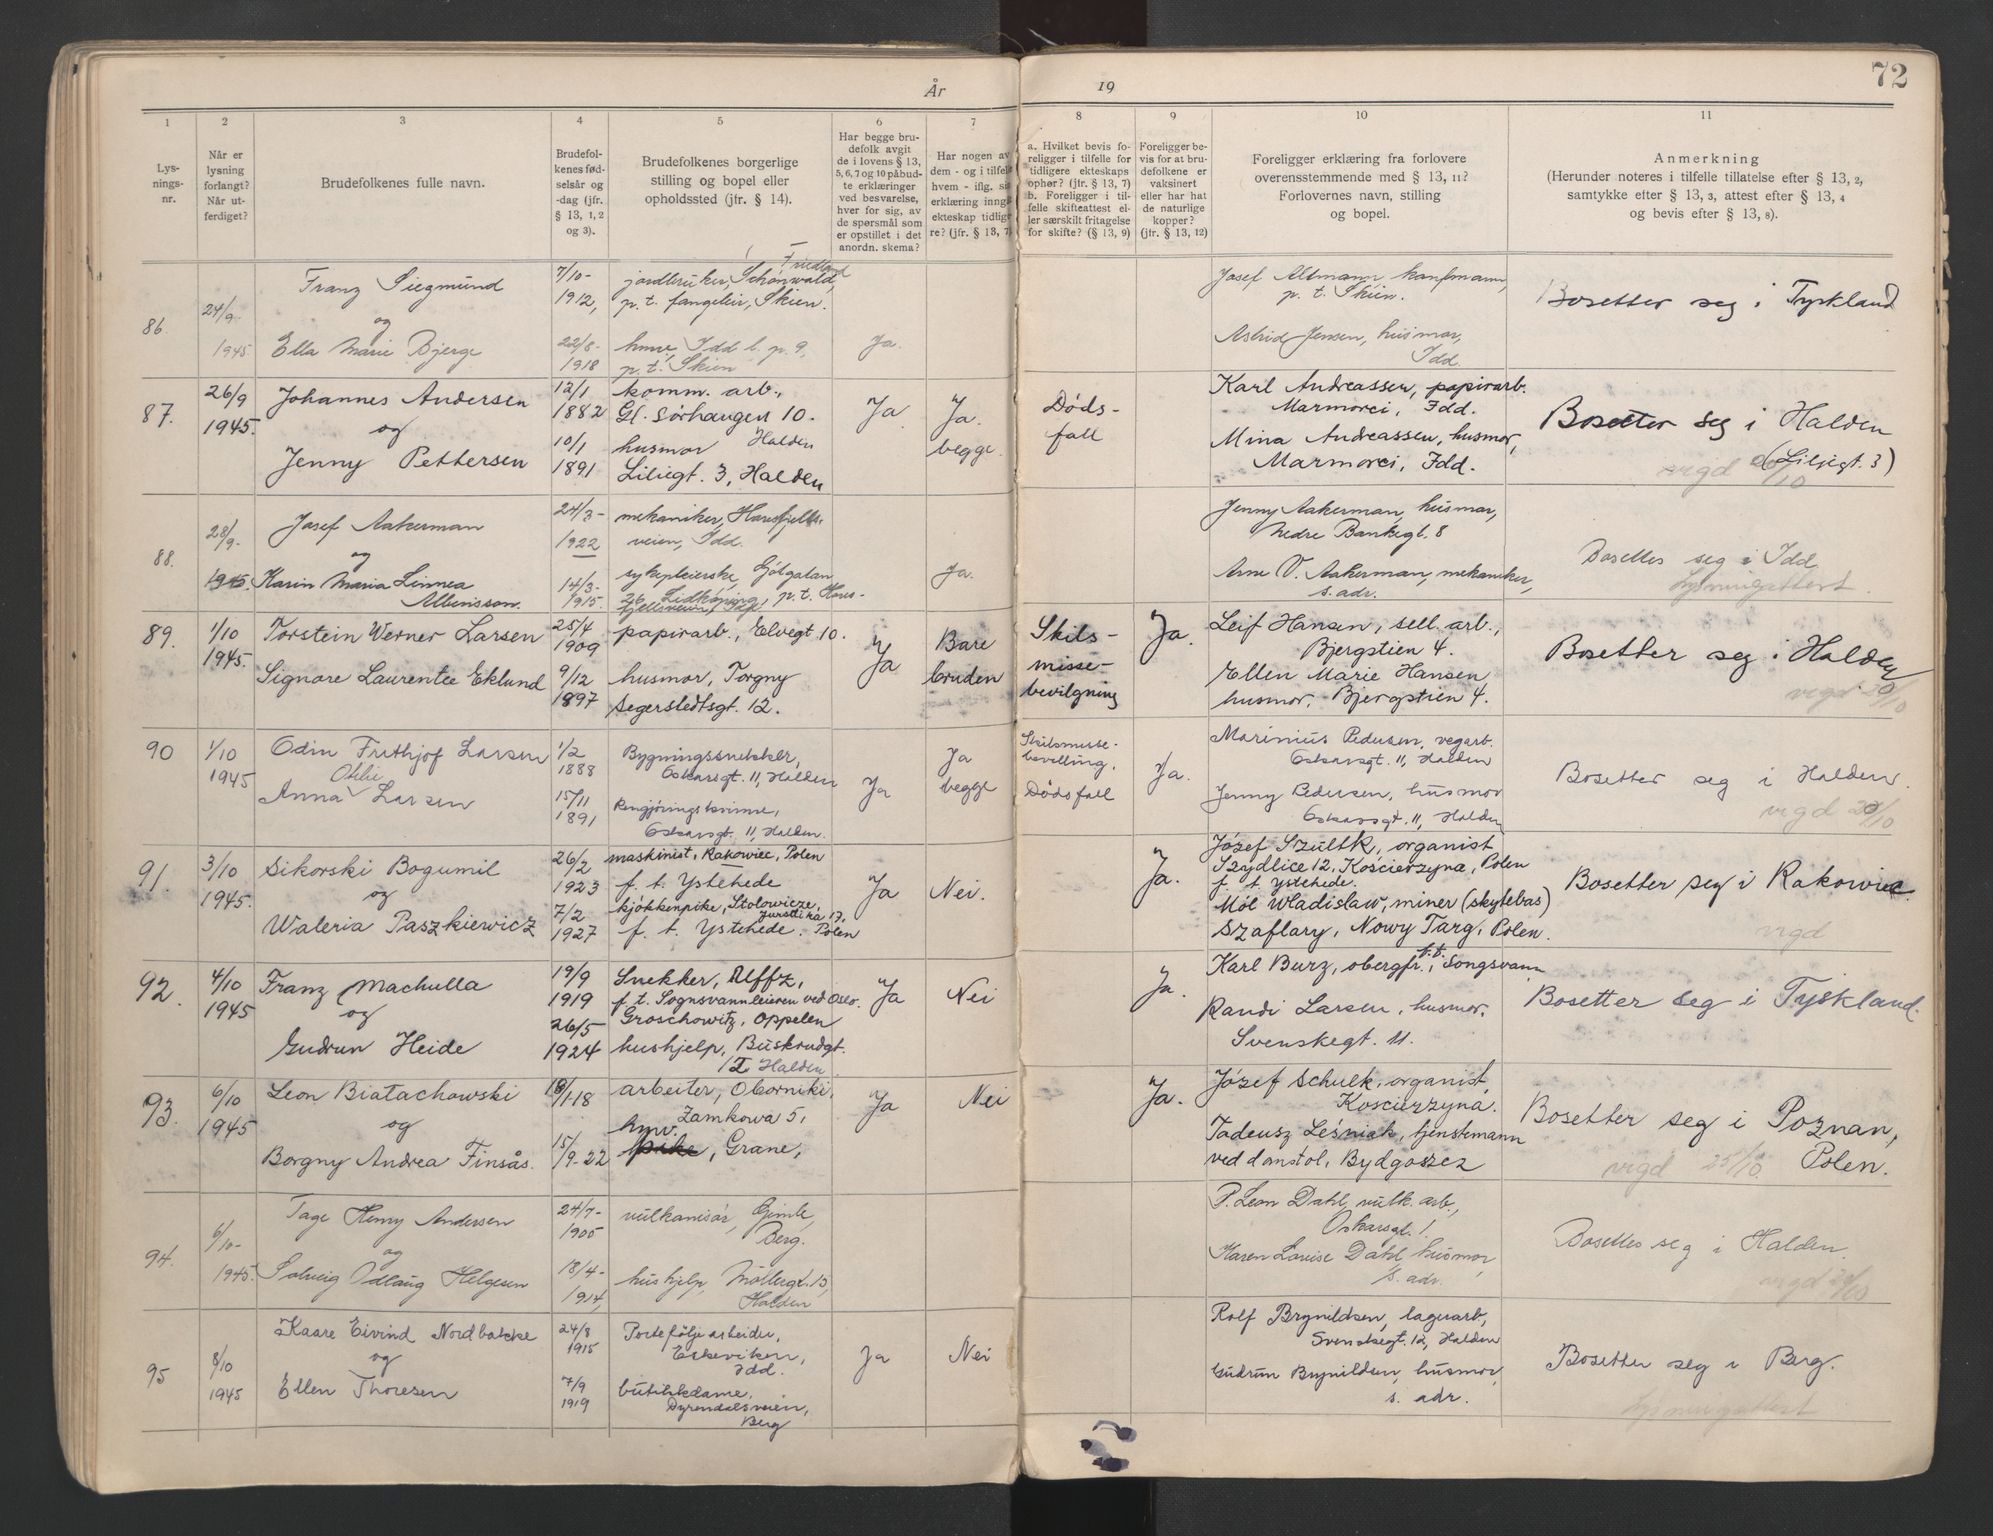 72
År
19
1
2
3
4
5
6
7
8
9
10
11
Lys-
nings-
nr.
Når er
lysning
forlangt?
Når ut-
ferdiget?
Brudefolkenes fulle navn.
Brudefol-
kenes fød-
selsår og
-dag (jfr.
§ 13, 1, 2
og 3).
Brudefolkenes borgerlige
stilling og bopel eller
opholdssted (jfr. § 14).
Har begge bru-
defolk avgit
de i lovens § 13,
5, 6, 7 og 10 påbud-
te erklæringer
ved besvarelse,
hver for sig, av
de spørsmål som
er opstillet i det
anordn. skema?
Har nogen av
dem - og i tilfelle
hvem - iflg. sin
erklæring inng
ekteskap tidlige
re? (jfr. § 13, 7
a. Hvilket bevis fo-
religger i tilfelle for
tidligere ekteskaps
ophør? (jfr. § 13, 7)
b. Foreligger i til-
felle skifteattest el-
ler særskilt fritagelse
for skifte? (§ 13, 9)
Foreligger be-
vis for at bru-
defolkene er
vaksinert
eller har hat
de naturlige
kopper?
(jfr. § 13, 12)
Foreligger erklæring fra forlovere
overensstemmende med § 13, 11?
Forlovernes navn, stilling
og bopel.
Anmerkning
(Herunder noteres i tilfelle tillatelse efter § 13, 2,
samtykke efter § 13, 3, attest efter § 13, 4
og bevis efter § 13, 8).
86.
24/9-
1945.
Franz Siegmund
og
Ella Marie Bjerge
7/10-
1912,
22/8-
1918
Friedland
jordbruker, Schönwald,
p. t. fangeleir, Skien.
Idd b. p. 9,
p. t. Skien
Ja.
Josef Altmann kaufmann,
p. t. Skien.
Astrid Jensen, husmor,
Idd.
Bosetter seg i Tyskland
87.
26/9
1945.
Johannes Andersen
og
Jenny Pettersen
12/1
1882
10/1
1891
komm. arb.,
Gl. Sørhaugen 10.
Halden
husmor
Liliegt. 3, Halden
Ja
Ja.
begge.
Døds-
fall
Karl Andreassen, papirarb.
Marmorci, Idd.
Mina Andreassen, husmor,
Marmorci, Idd.
Bosetter seg i Halden
(Liljegt. 3)
vigd 20/10
88.
28/9-
1945.
Josef Aakerman
og
Karin Maria Linnea
Albinsson.
24/3-
1922
14/3-
1915.
mekaniker, Haresfjells-
veien, Idd.
sykepleierske, Götgatan
26, Lidköping, p. t. Hares-
fjellsveien, Idd.
Ja.
Jenny Aakerman, husmor,
Nedre Bankegt. 8
Arne V. Aakerman, mekaniker,
s. adr.
Bosettes seg i Idd.
Lysningsattest.
89.
1/10
1945.
Torstein Werner Larsen
Signore Laurentze Eklund
25/4
1909
9/12
1897
papirarb., Elvegt 10.
husmor, Torgny
Segerstedtsgt. 12.
Ja
Bare
bruden
Skils-
misse-
bevilgning
Ja.
Leif Hansen, sell. arb.,
Bjergstien 4.
Ellen Marie Hansen
husmor, Bjergstien 4.
Bosetter seg i Halden
vigd 20/10
90
1/10
1945
Odin Frithjof Larsen
Otilie
Anna Larsen
1/2
1888
15/11
1891
Bygningssnekker,
Oskarsgt. 11, Halden
Rengjøringskvinne,
Oskarsgt. 11, Halden.
Ja
Ja
begge
Skilsmisse-
bevilling.
Dødsfall
Ja.
Marinius Pedersen, vegarb.
Oskarsgt. 11, Halden
Jenny Pedersen, husmor
Oskarsgt. 11, Halden
Bosetter seg i Halden.
vigd 20/10
91.
3/10
1945.
Sikorski Bogumil
og
Waleria Paszkiewicz
26/2
1923
7/2
1927
maskinist, Rakowiec, Polen
f. t. Ystehede
kjøkkenpike, Stolowicze,
Jurstika 17.
f. t. Ystehede. Polen
Ja
Nei.
Ja.
Józef Szultk, organist
Szydlice 12, Kościerzyna, Polen
f. t. Ystehede.
Mól Wladislaw, miner (skytebas)
Szaflary, Nowy Targ, Polen.
Bosetter seg i Rakowiec.
vigd
92.
4/10
1945
Franz Machulla
og
Gudrun Heide
19/9
1919
26/5
1924
Snekker, Uffz,
f. t. Sognsvannleieren ved Oslo.
Groschowitz, Oppelen
hushjelp, Buskrudgt.
1I Halden
Ja
Nei
Ja.
Karl Burz, obergfr., f.t. Songsvann
Randi Larsen, husmor,
Svenskegt. 11.
Bosetter seg i Tyskland.
93.
6/10
1945
Leon Biatachowski
og
Borgny Andrea Finsås.
/1-18
15/9-22
arbeiter, Oborniki,
Zamkowa 5,
hyw.
pike, Grane,
Ja
Nei
Ja.
Józef Schulk, organist,
Koscierzyna.
Tadeusz Leśniak, tjenstemann
ved domstol, Bydgoszcz
Bosetter seg i Poznan,
Polen.
vigd 25/10
94.
6/10-
1945.
Tage Henry Andersen
og
Solveig Odlaug Helgesen
24/7-
1905
18/4-
1914,
vulkanisör, Gimle,
Berg.
hushjelp, Möllergt. 13,
Halden
P. Leon Dahl, vulk. arb.,
Oskarsgt. 1.
Karen Louise Dahl, husmor,
s. adr.
Bosettes seg i Halden.
vigd 20/10
95
8/10
1945
Kaare Eivind Nordbakke
og
Ellen Thoresen
24/8
1915
7/9
1919
Portefølje arbeider,
Eskeviken,
Idd.
butikkdame,
Dyrendalsveien,
Berg
Ja
Nei
Rolf Brynildsen, lagerarb,
Svenskegt. 12, Halden
Gudrun Brynildsen, husmor,
s. adr.
Bosetter seg i Berg.
Lysningsattest